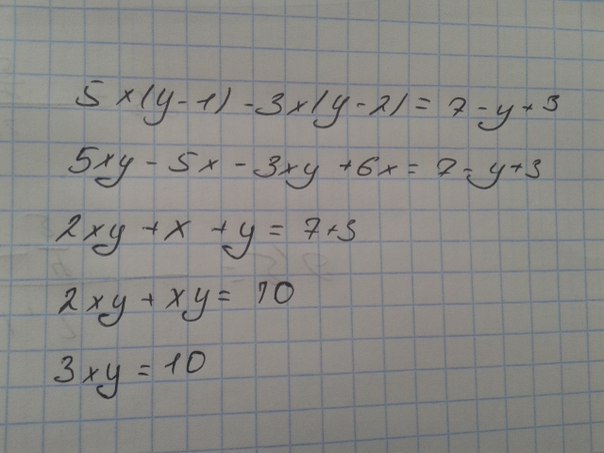 5x(y-1)-3x(y-2)=7-y+3
5xy-5x-3xy+6x=7-y+3
2xy+x+y=7+3
2xy+xy=10
3xy=10